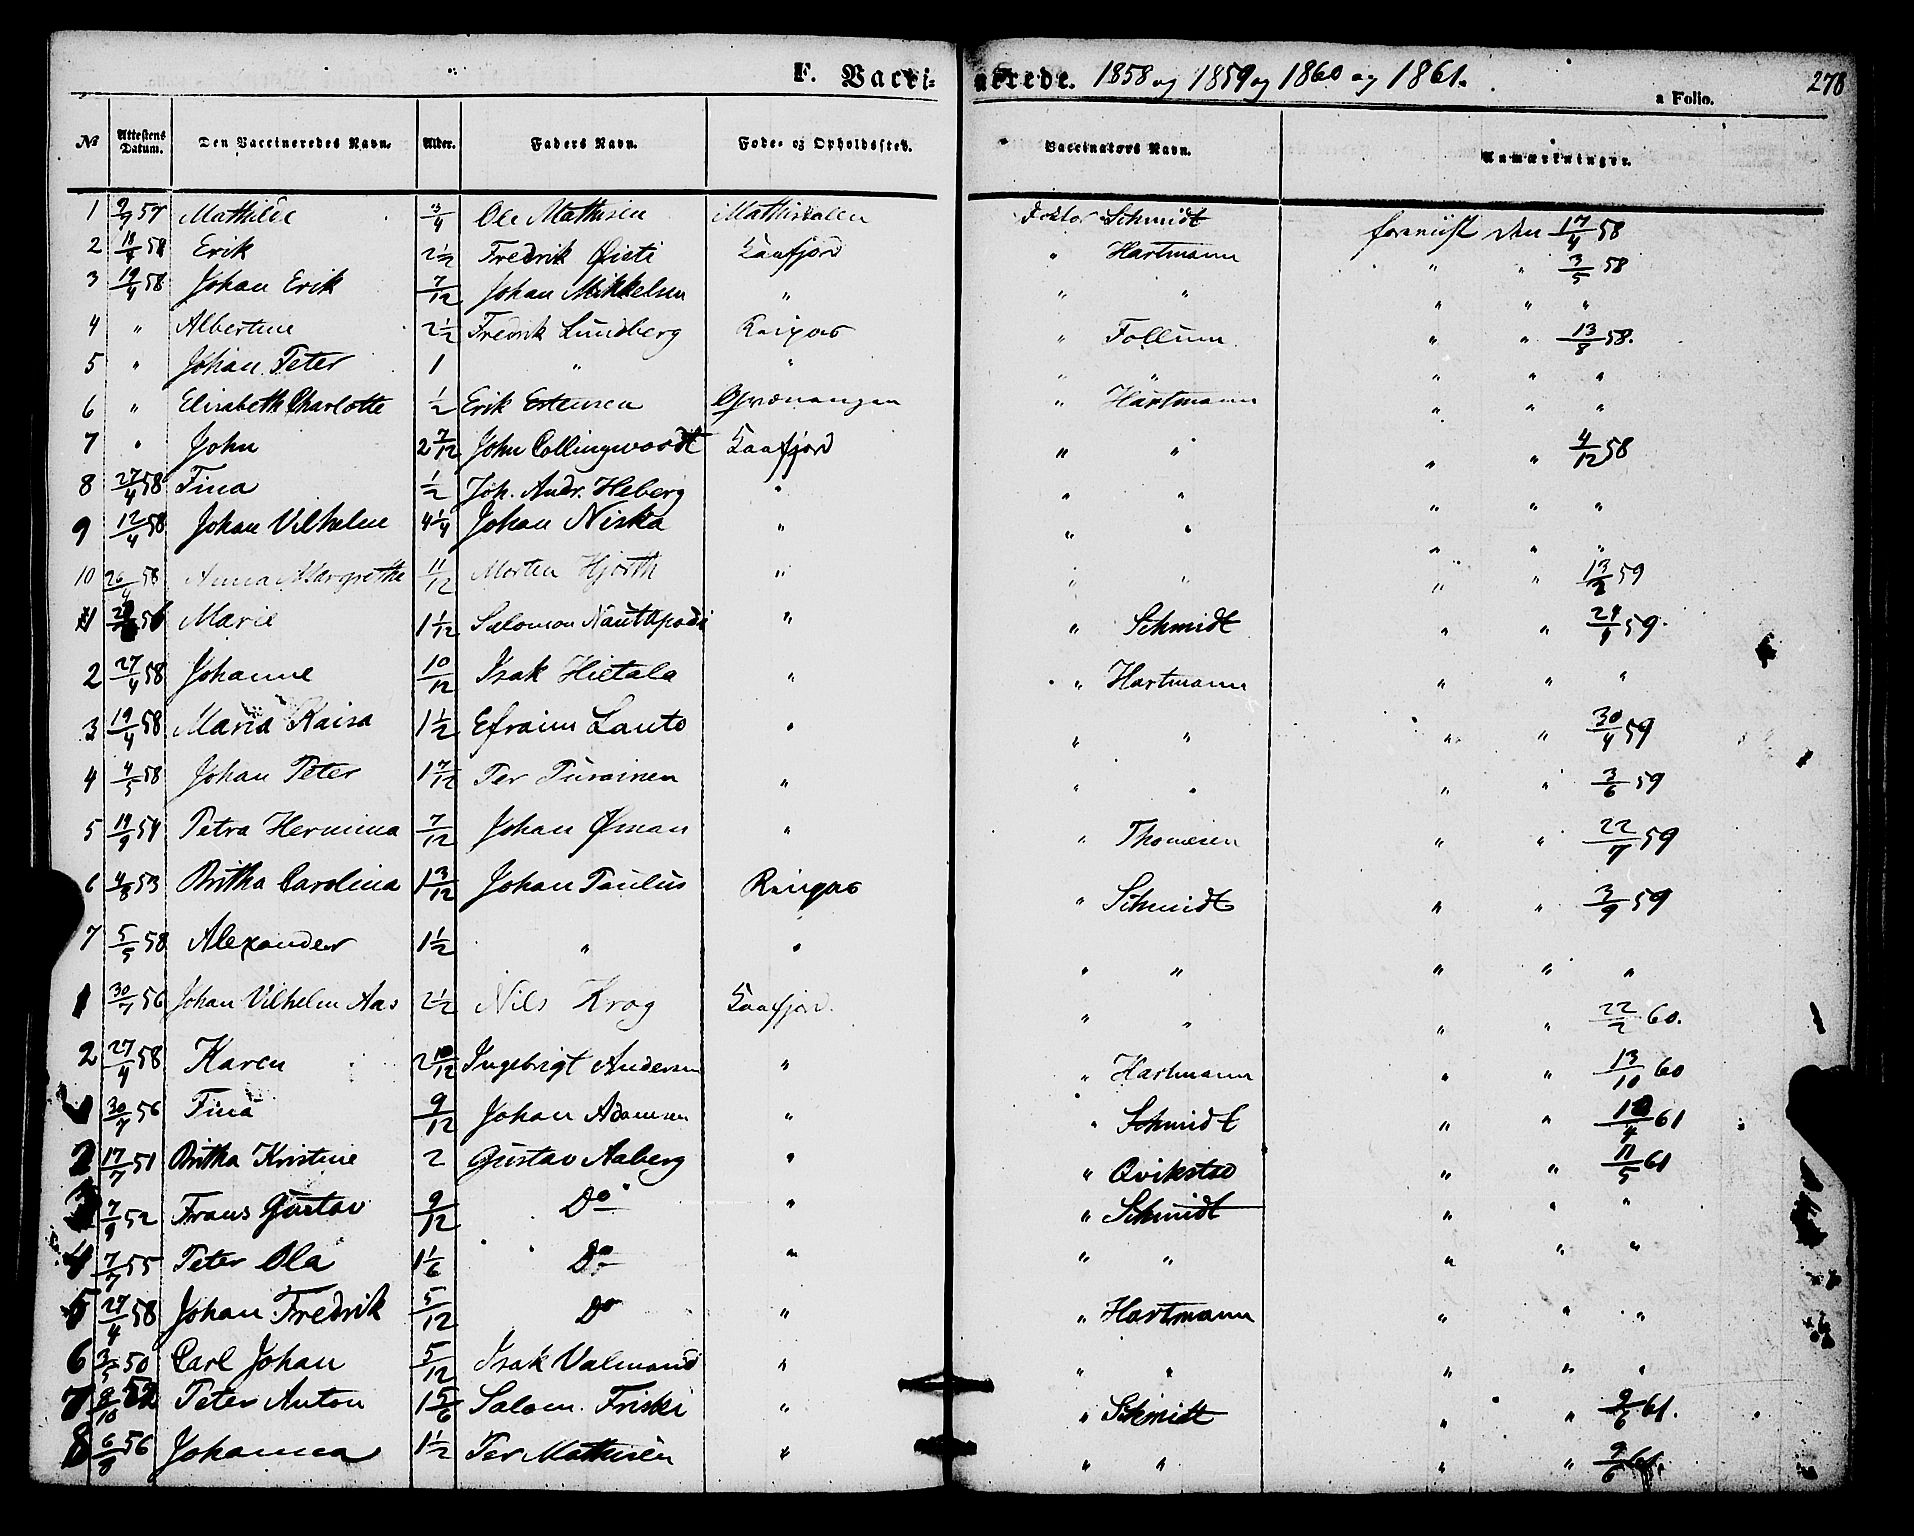 F. Vaccinerede. 1858 og 1859 og 1860 og 1861. a Folio. 278
№ Attestens Datum. Den Vaccineredes Navn. Alder. Faders Navn. Føde- og Opholdssted. Vaccinators Navn. Anmærkninger.
1 9/9 57 Mathilde 3/4 Ole Mathisen Mathisdalen Doktor Schmidt forevist den 17/4 58
2 18/4 58 Erik 2 1/2 Fredrik Øisti Kaafjord " Hartmann " " 3/5 58
3 19/4 58 Johan Erik 7/12 Johan Mikkelsen " " " " " "
4 " Albertine 2 1/2 Fredrik Lundberg Raipas " Follum " " 13/8 58.
5 " Johan Peter 1 " " " " " " "
6 " Elisabeth Charlotte 1/2 Erik Estensen Qvænangen " Hartmann " " "
7 " John 2 7/12 John Collingwoodt Kaafjord " " " " 4/12 58
8 27/4 58 Fina 1/2 Joh. Andr. Heberg " " " " " "
9 12/4 58 Johan Vilhelm 4 1/4 Johan Niska " " " " " "
10 26/4 58 Anna Margrethe 11/12 Morten Hjorth " " " " " 13/2 59
1 56 Marie 1 1/12 Salomon " " Schmidt " " 24/4 59.
2 27/4 58 Johanne 10/12 Isak Hietala " " Hartmann " " "
3 19/4 58 Maria Kaisa 1 1/2 Efraim Lauto " " " " " 30/4 59
4 4/5 58 Johan Peter 1 7/12 Per Turainen " " " " " 3/6 59
5 19/9 54 Petra Hermina 7/12 Johan Øman " " Thomesen " " 22/7 59
6 4/8 53 Britha Carolina 1 3/12 Johan Paulus Raipas " Schmidt " " 3/9 59
7 5/5 58 Alexander 1 1/2 " " " " " " "
1 30/7 56 Johan Vilhelm Aas 2 1/2 Nils Krog Kaafjord. " " " " 22/2 60.
2 27/4 58 Karen 2 10/12 Ingebrigt Andersen " " Hartmann " " 13/10 60
30/7 56 Fina 9/12 Johan Adamsen " " Schmidt " " 61
2 17/7 51 Britha Kristine 2 Gustav Aaberg " " Qvikstad " " 11/5 61
3 7/9 52 Frans Gustav 9/12 Do " " Schmidt " " "
4 7/7 55 Peter Ola 1 1/6 Do " " " " " "
5 27/4 58 Johan Fredrik 5/12 Do " " Hartmann " " "
6 3/5 50 Carl Johan 5/12 Isak Valmand " " " " " "
7 8/10 52 Peter Anton 1 5/6 Salom. Friski " " Schmidt " " 9/6 61.
8 6/8 56 Johanna 1 1/2 Per Mathisen " " " " " 9/6 61.